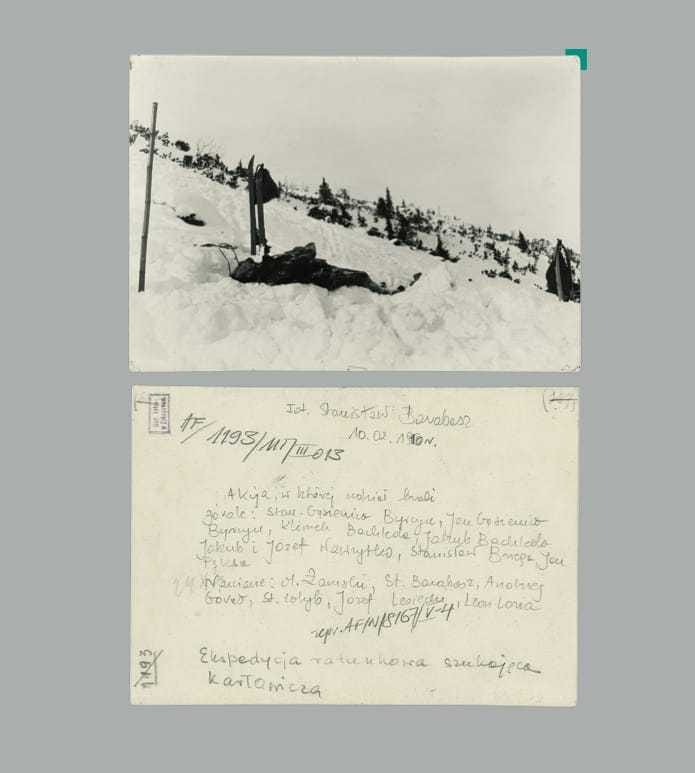 Fot. Stanisław Barabasz
10.02.1910 r.
AF/1193/MT/III 013
Akcja, w której udział brali
górale: Stan. Gąsienica Byrcyn, Jan Gąsienica
Byrcyn, Klimek Bachleda, Jakub Bachleda
Jakub i Józef Wawrytko, Stanisław Jan
Pęksa
M. Zaruski, St. Barabasz, Andrzej
St. Zdyb, Józef Lesiecki, Leon Loria
repr. AF/N/8167/V-4
1193
Ekspedycja ratunkowa szukająca
Karłowicza